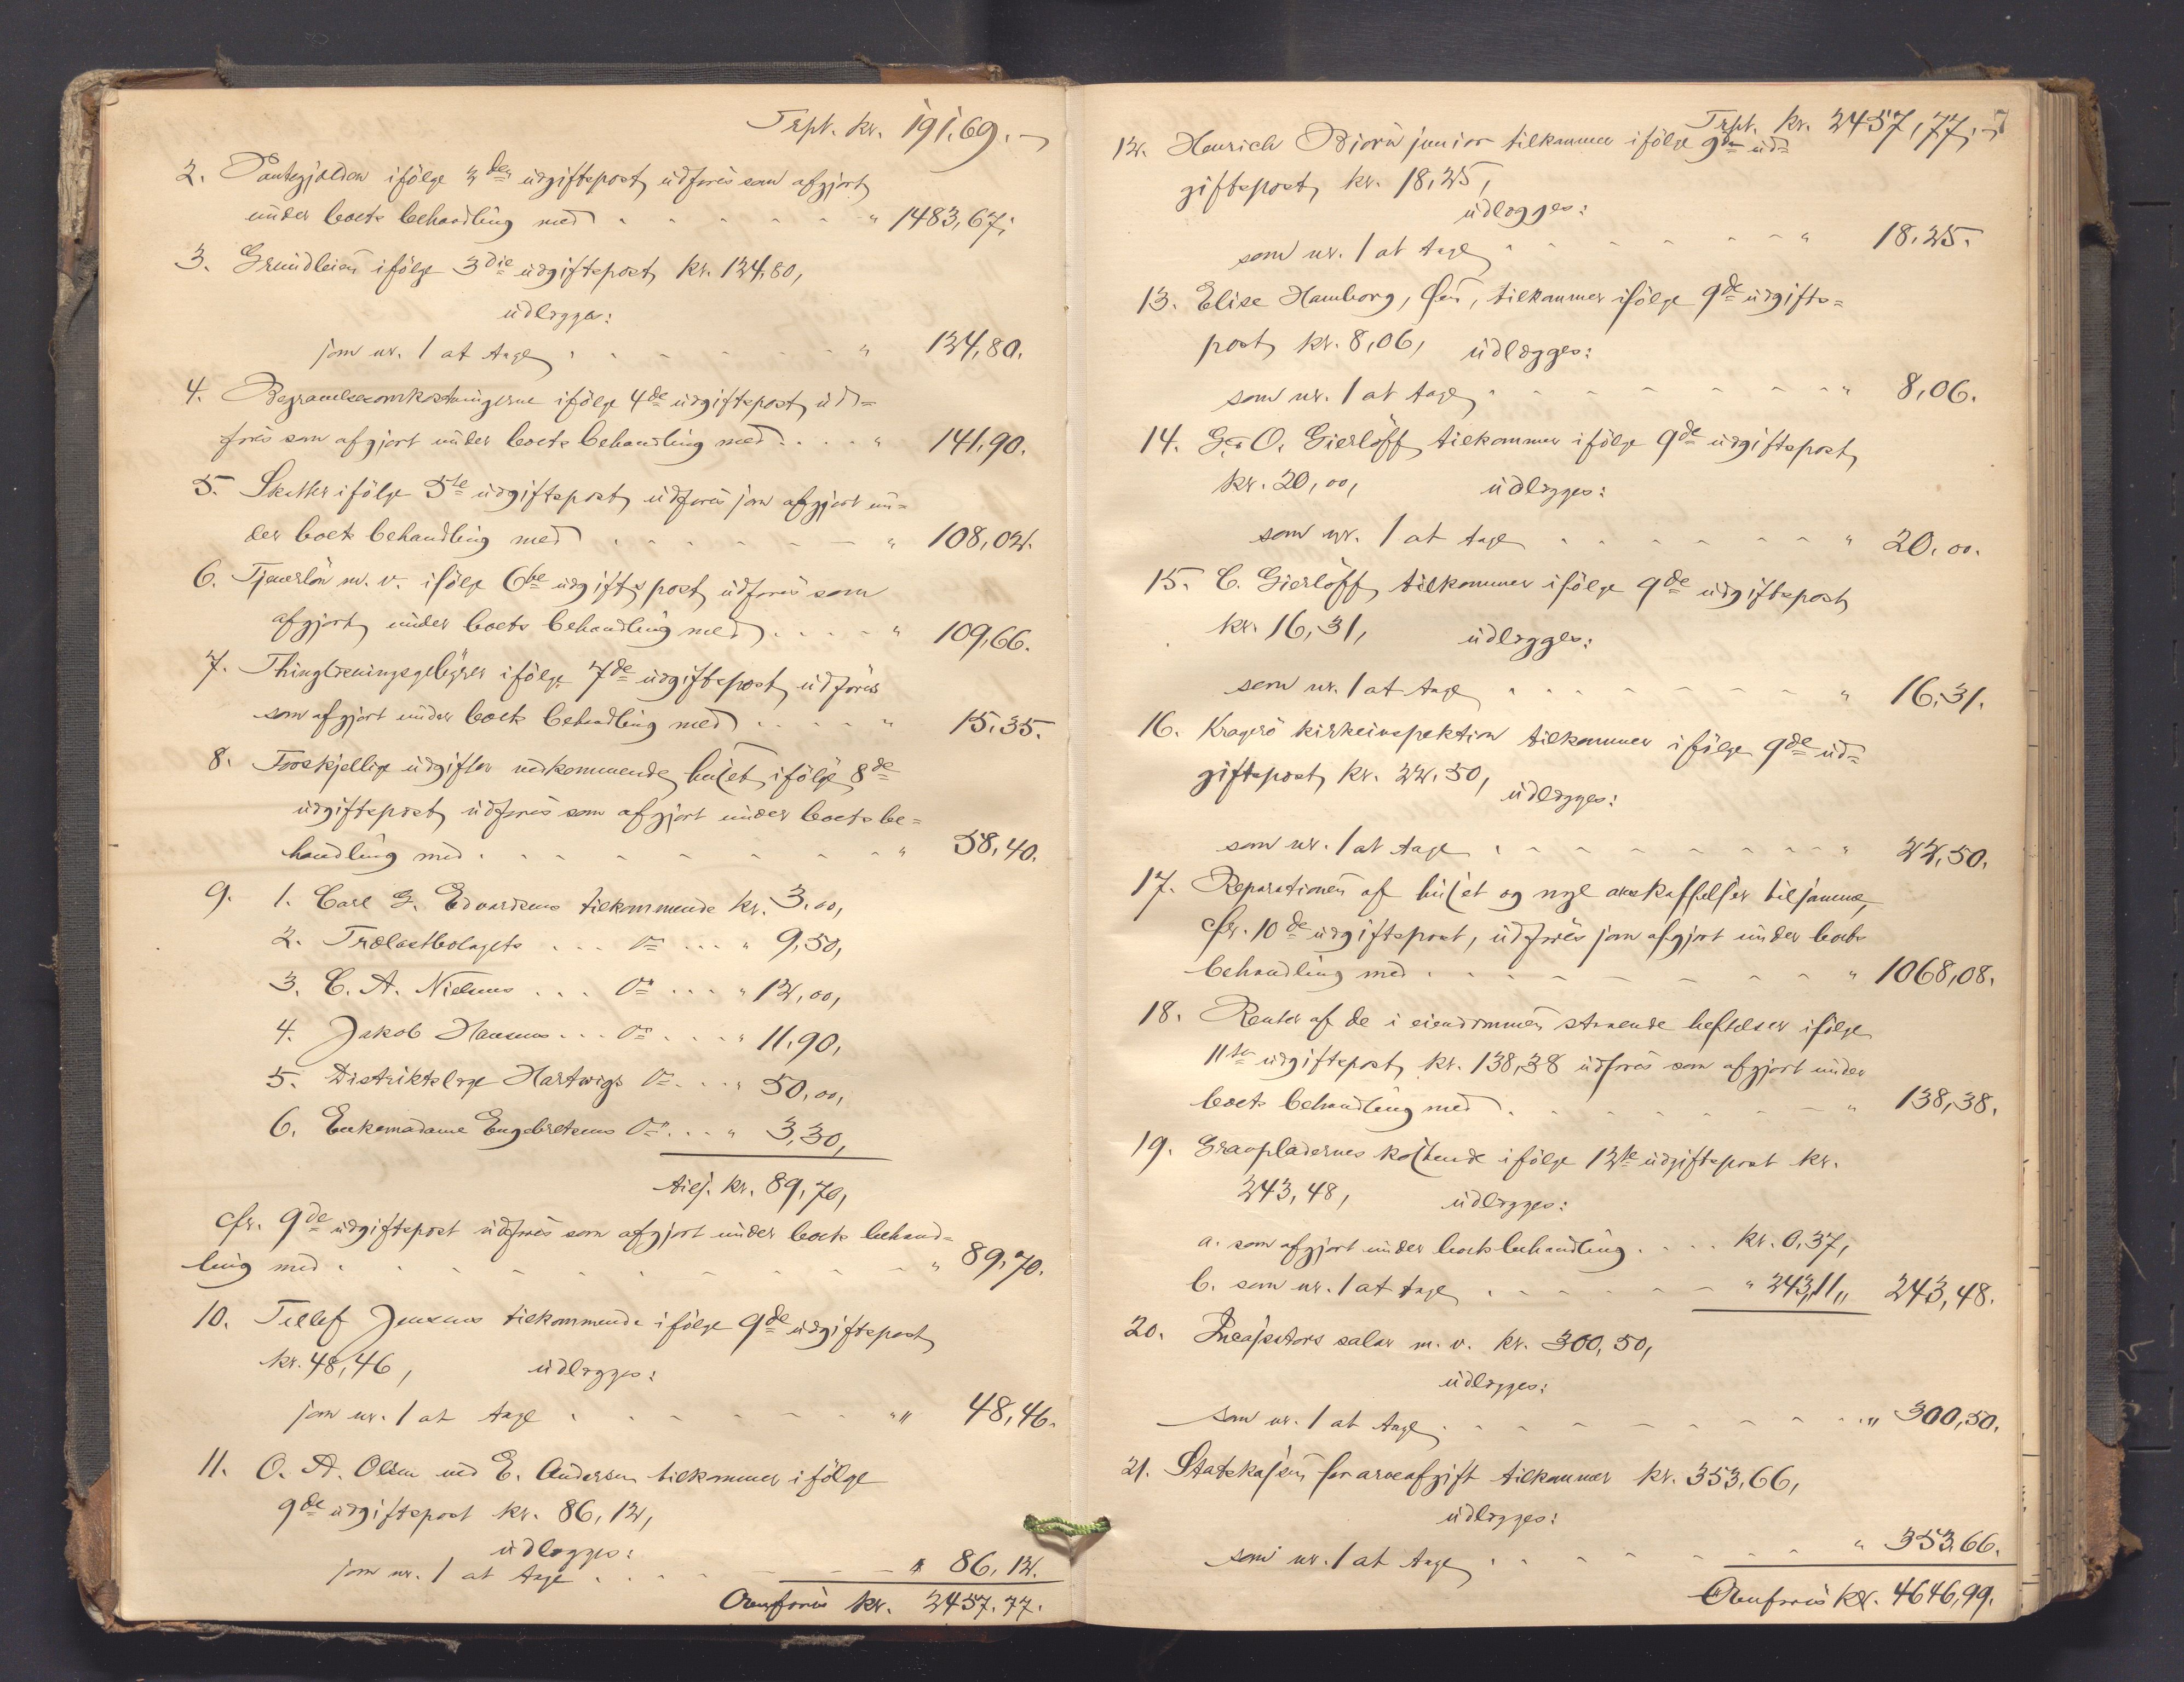 Trspt. kr. 191,69.
2. Pantegjælden ifölge 2den udgiftspost udföres som afgjort
under boets behandling med . . . . . . " 1483,67.
3. Grundleien ifölge 3die udgiftspost kr. 124,80,
udlægges:
som nr. 1 at tage . . . . . . " 124,80.
4. Begravelsesomkostningerne ifölge 4de udgiftspost ud=
föres som afgjort under boets behandling med . . . . " 141,90.
5. Skatter ifölge 5te udgiftspost udföres som afgjort un=
der boets behandling med . . . . . . " 108,02.
6. Tjenerlön m. v. ifölge 6te udgiftspost udföres som
afgjort under boets behandling med . . . . " 109,66.
7. Thinglæsningsgebyrer ifölge 7de udgiftspost udföres
som afgjort under boets behandling med . . . . . " 15,35.
8. Forskjellige udgifter vedkommende huset ifölge 8de
udgiftspost udföres som afgjort under boets be=
handling med . . . . . . . . " 58,40.
9. 1. Carl G. Edvardsens tilkommende kr. 3,00,
2. Trælastbolagets . . . do . . . " 9,50,
3. C. A. Nielsens . . . do . . . " 12,00,
4. Jakob Hansens . . . do . . . " 11,90,
5. Distriktslæge Hartwigs do . . . " 50,00,
6. Enkemadame Engebretsens do . . . " 3,30,
tils. kr. 89,70,
cfr. 9de udgiftspost udföres som afgjort under boets behand=
ling med . . . . . . . . . . " 89,70.
10. Tellef Jensens tilkommende ifölge 9de udgiftspost
kr. 48,46, udlægges:
som nr. 1 at tage . . . . . . " 48,46.
11. O. A. Olsen ved E. Andersen tilkommer ifölge
9de udgiftspost kr. 86,12,
udlægges:
som nr. 1 at tage . . . . . . " 86,12.
Overföres kr. 2457,77.
Trspt. kr. 2457,77. 7
12. Henrich Biorn junior tilkommer ifölge 9de ud=
giftspost kr. 18,25,
udlægges:
som nr. 1 at tage . . . . . . . " 18,25.
13. Elise Hamborg, tilkommer ifölge 9de udgifts=
post kr. 8,06, udlægges:
som nr. 1 at tage . . . . . . . . . " 8,06.
14. G. & O. Gierlöff tilkommer ifölge 9de udgiftspost
kr. 20,00, udlægges:
som nr. 1 at tage . . . . . . . " 20,00.
15. C. Gierlöff tilkommer ifölge 9de udgiftspost
kr. 16,31, udlægges:
som nr. 1 at tage . . . . . . . . " 16,31.
16. Kragerö kirkeinspektion tilkommer ifölge 9de ud=
giftspost kr. 22,50, udlægges:
som nr. 1 at tage . . . . . . . . . " 22,50.
17. Reparationen af huset og nye anskaffelser til samme,
cfr. 10de udgiftspost, udföres som afgjort under boets
behandling med . . . . . . . . " 1068,08.
18. Renter af de i eiendommen staaende heftelser ifölge
11te udgiftspost kr. 138,38 udföres som afgjort under
boets behandling med . . . . . . . . " 138,38.
19. Gravpladernes kostende ifölge 12te udgiftspost kr.
243,48, udlægges:
a. som afgjort under boets behandling . . . . kr. 0,37,
b. som nr. 1 at tage . . . . . . " 243,11,, 243,48.
20. Incassators salær m. v. kr. 300,50,
udlægges:
som nr. 1 at tage . . . . . . . . . " 300,50.
21. Statskassen for arveafgift tilkommer kr. 353,66,
udlægges:
som nr. 1 at tage . . . . . . . . " 353,66.
Overföres kr. 4646,99.